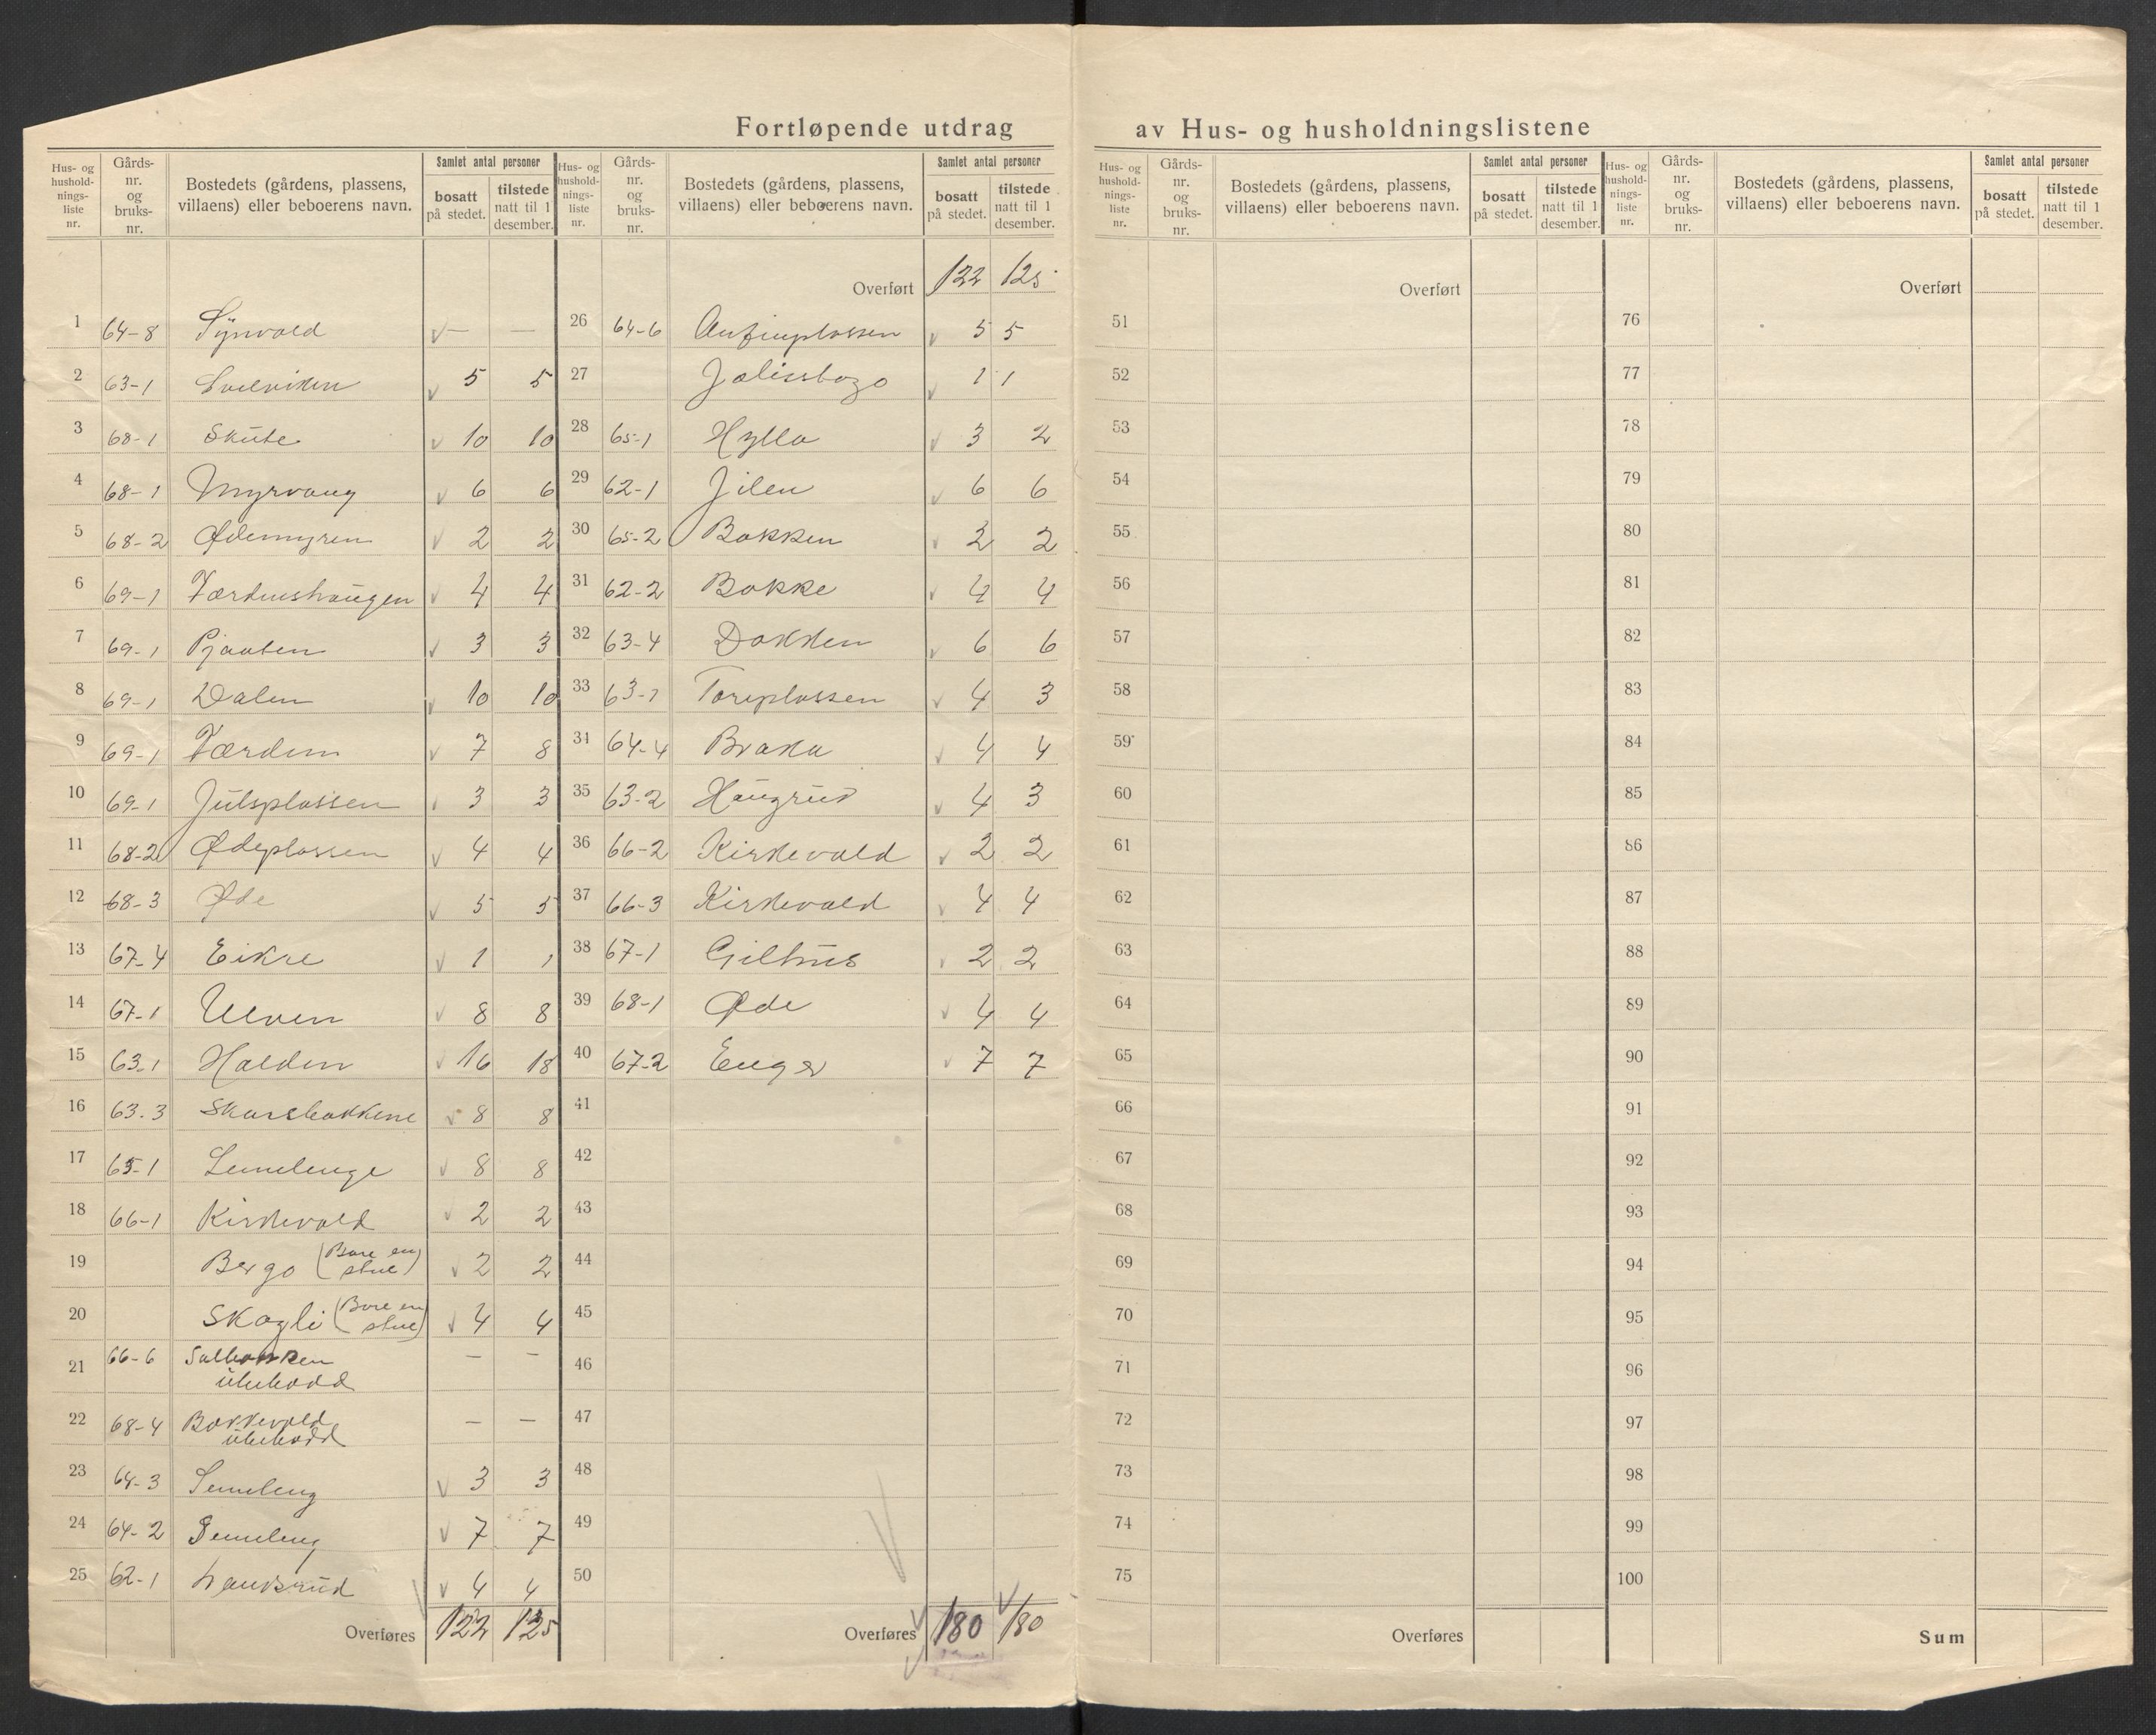 Fortløpende utdrag av Hus- og husholdningslistene
Hus- og hushold-nings-liste nr. | Gårds-nr. og bruks-nr. | Bostedets (gårdens, plassens, villaens) eller beboerens navn. | Samlet antal personer | bosatt på stedet. | tilstede natt til 1 desember.
1 64-8 Synvold — —
2 63-1 5 5
3 68-1 Skute 10 10
4 68-1 Myrvang 6 6
5 68-2 Ødemyren 2 2
6 69-1 Værdenshaugen 4 4
7 69-1 3 3
8 69-1 Dalen 10 10
9 69-1 Værdem 7 8
10 69-1 Julsplassen 3 3
11 68-2 Ødeplassen 4 4
12 68-3 Øde 5 5
13 67-4 Eikre 1 1
14 67-1 Ulven 8 8
15 63-1 Halden 16 18
16 63-3 Skarsbakkene 8 8
17 65-1 Semelenge 8 8
18 66-1 Kirkevold 2 2
19 Bergo (Bare en stue) 2 2
20 Skogli (Bare en stue) 4 4
21 66-6 Solbakken — —
ubebodd
22 68-4 Bakkevold — —
ubebodd
23 64-3 Semeleng 3 3
24 64-2 Semeleng 7 7
25 62-1 4 4
Overføres 122 125
Hus- og hushold-nings-liste nr. | Gårds-nr. og bruks-nr. | Bostedets (gårdens, plassens, villaens) eller beboerens navn. | Samlet antal personer | bosatt på stedet. | tilstede natt til 1 desember.
Overført 122 125
26 64-6 Anfinplassen 5 5
27 1 1
28 65-1 Hylla 3 2
29 62-1 Jilen 6 6
30 65-2 Bakken 2 2
31 62-2 Bakke 4 4
32 63-4 Dokken 6 6
33 63-1 Toreplassen 4 3
34 64-4 Braka 4 4
35 63-2 Haugrud 4 3
36 66-2 Kirkevold 2 2
37 66-3 Kirkevold 4 4
38 67-1 Gilhus 2 2
39 68-1 Øde 4 4
40 67-2 Enger 7 7
41
42
43
44
45
46
47
48
49
50
Overføres 180 180
Hus- og hushold-nings-liste nr. | Gårds-nr. og bruks-nr. | Bostedets (gårdens, plassens, villaens) eller beboerens navn. | Samlet antal personer | bosatt på stedet. | tilstede natt til 1 desember.
Overført
51
52
53
54
55
56
57
58
59
60
61
62
63
64
65
66
67
68
69
70
71
72
73
74
75
Overføres
Hus- og hushold-nings-liste nr. | Gårds-nr. og bruks-nr. | Bostedets (gårdens, plassens, villaens) eller beboerens navn. | Samlet antal personer | bosatt på stedet. | tilstede natt til 1 desember.
Overført
76
77
78
79
80
81
82
83
84
85
86
87
88
89
90
91
92
93
94
95
96
97
98
99
100
Sum